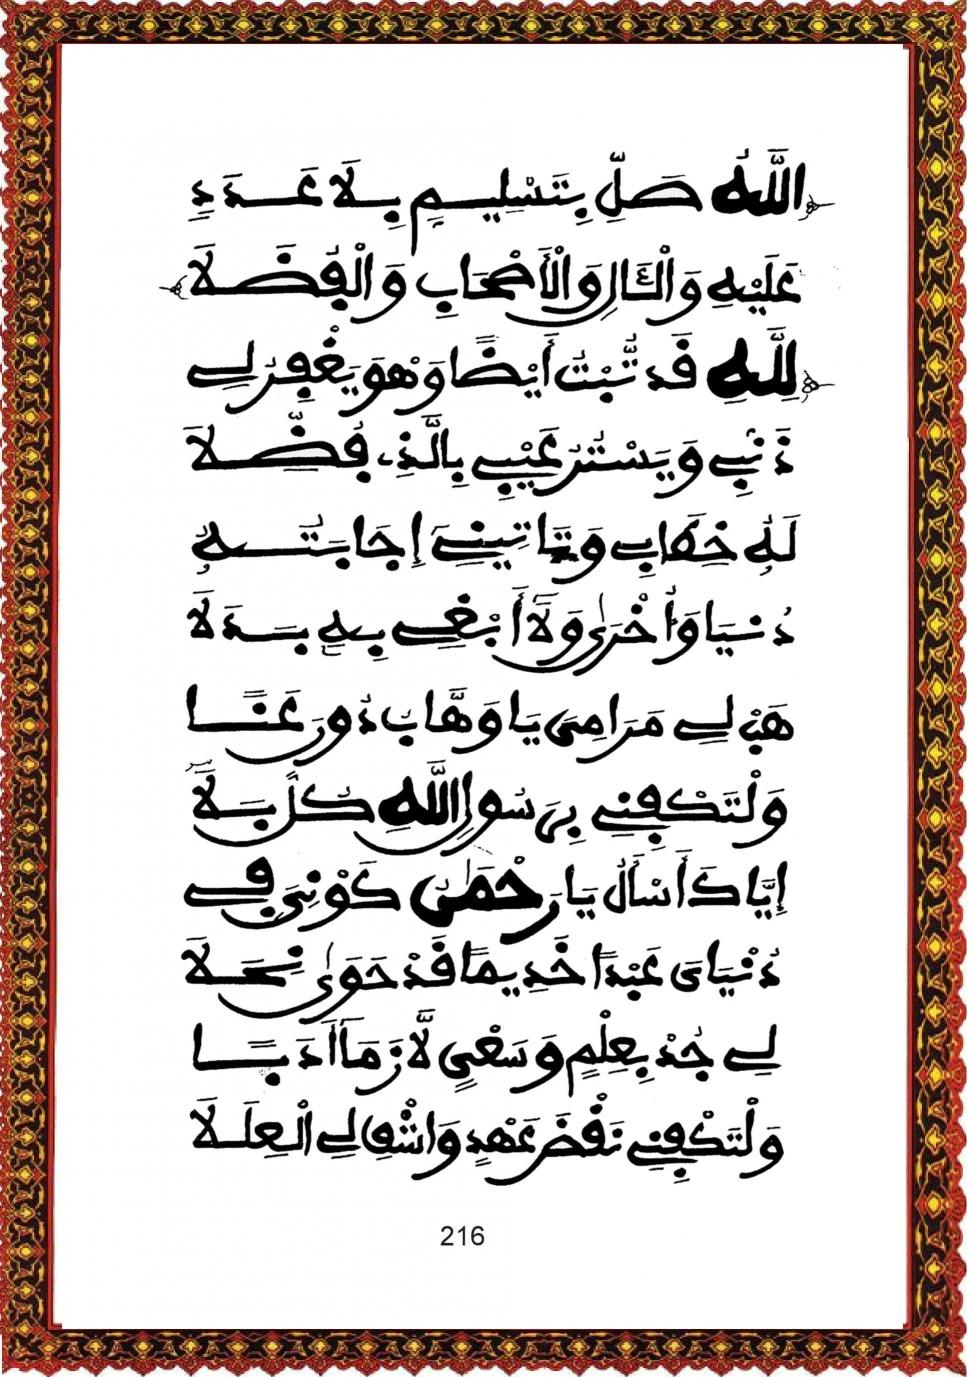 اللَّهُ صَلِّ بِتَسْلِيمٍ بِلَا عَدَدِ
عَلَيْهِ وَالْئَالِ وَالْأَصْحَابِ وَالْفُضَلَا
لِلَّهِ قَدْ تُّبْتُ أَيْضًا وَهْوَ يَغْفِرُ لِي
ذَنْبِي وَيَسْتُرُ عَيْبِي بِالَّذِي فَضَّلَا
لَهُ خِطَابِي وَتَاتِينِي إِجَابَتُهُ
دُنْيَا وَأُخْرَى وَلَا أَبْغِي بِهِ بَدَلَا
هَبْ لِي مَرَامِيَ يَا وَهَّابُ دُورَ عَنًا
وَلْتَكْفِنِي بِرَسُولِ اللَّهِ كُلَّ بَلَا
إِيَّاكَ أَسْأَلُ يَا رَحْمَنُ كَوْنِيَ فِي
دُنْيَايَ عَبْدًا خَدِيمًا قَدْ حَوَى نِحَلَا
لِي جُدْ بِعِلْمٍ وَسَعْيٍ لَّازَمَا أَدَبًا
وَلْتَكْفِنِي نَقْضَ عَهْدٍ وَاشْفِ لِي الْعِلَلَا
216